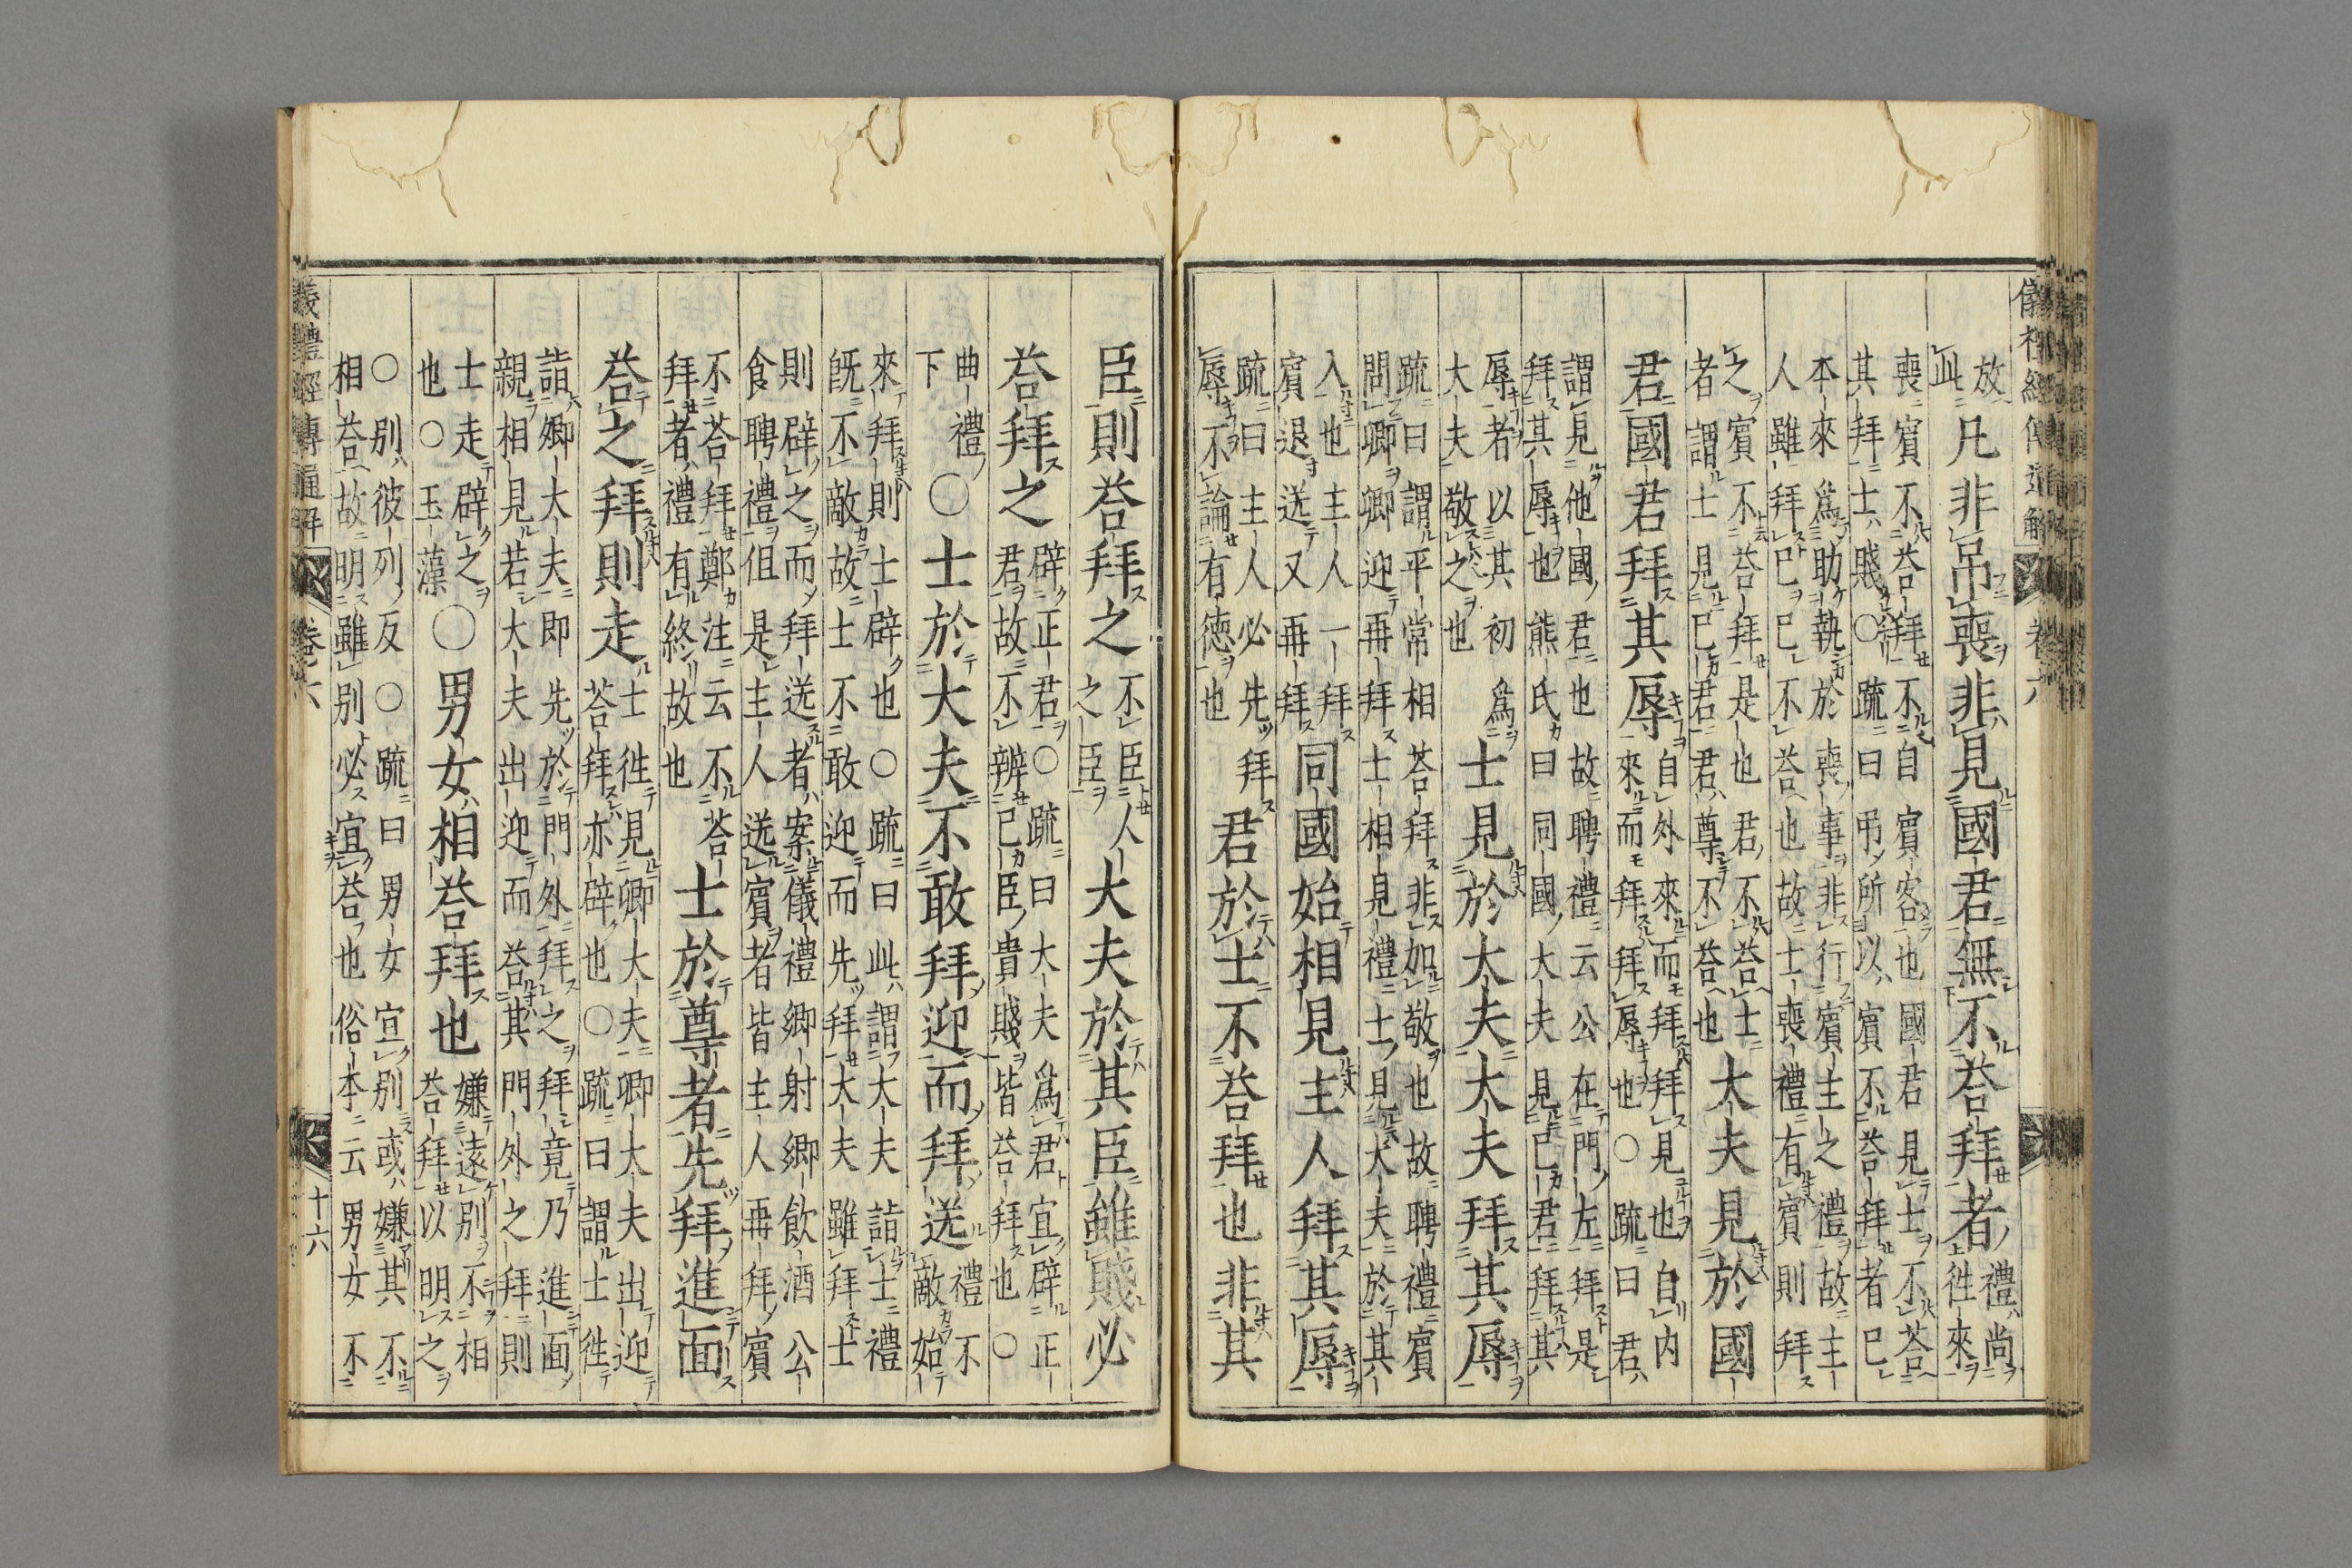 儀禮經傳通解 卷六
放
此
凡非吊喪非見國君無不荅拜者
禮尚
往來
喪賓不荅拜不自賓客也國君見士不荅
其拜士賤〇䟽曰吊所以賓不荅拜者已
本來爲助執於喪事非行賓主之禮故主
人雖拜已已不荅也故士喪禮有賓則拜
之賓不荅拜是也君不荅士
者謂士見已君君尊不荅也
大夫見於國
君國君拜其辱
自外來而拜拜見也自内
來而拜拜辱也〇䟽曰君
謂見他國君也故聘禮云公在門左拜是
拜其辱也熊氏曰同國大夫見已君拜其
辱者以其初爲
大夫敬之也
士見於大夫大夫拜其辱
䟽曰謂平常相荅拜非如敬也故聘禮賓
問卿卿迎再拜士相見禮士見大夫於其
入也主人一拜
賓退送又再拜
同國始相見主人拜其辱
䟽曰主人必先拜
辱不論有德也
君於士不荅拜也非其
臣則荅拜之
不臣人
之臣
大夫於其臣雖賤必
荅拜之
辟正君〇䟽曰大夫爲君宜辟正
君故不辨已臣貴賤皆荅拜也〇
曲禮
下
〇士於大夫不敢拜迎而拜送
禮不
敵始
來拜則士辟也〇䟽曰此謂大夫詣士禮
既不敵故士不敢迎而先拜大夫雖拜士
則辟之而拜送者案儀禮卿射卿飲酒公
食聘禮但是主人送賓者皆主人再拜賓
不荅拜鄭注云不荅
拜者禮有終故也
士於尊者先拜進面
荅之拜則走
士往見卿大夫卿大夫出迎
荅拜亦辟也〇䟽曰謂士往
詣卿大夫即先於門外拜之拜竟乃進面
親相見若大夫出迎而荅其門外之拜則
士走辟之
也〇玉藻
〇男女相荅拜也
嫌遠別不相
荅拜以明之
〇別彼列反〇䟽曰男女宜別或嫌其不
相荅故明雖別必宜荅也俗本云男女不
儀禮經傳通解 卷六 十六